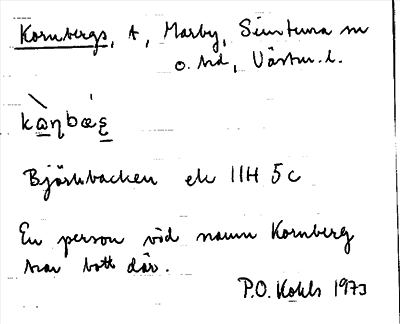 Kornbergs, t, Marby, Simtuna sn
o. hd, Västm. l.
Björkbacken ek 11H 5c
En person vid namn Kornberg
har bott där.
P.O. Kohls 1973